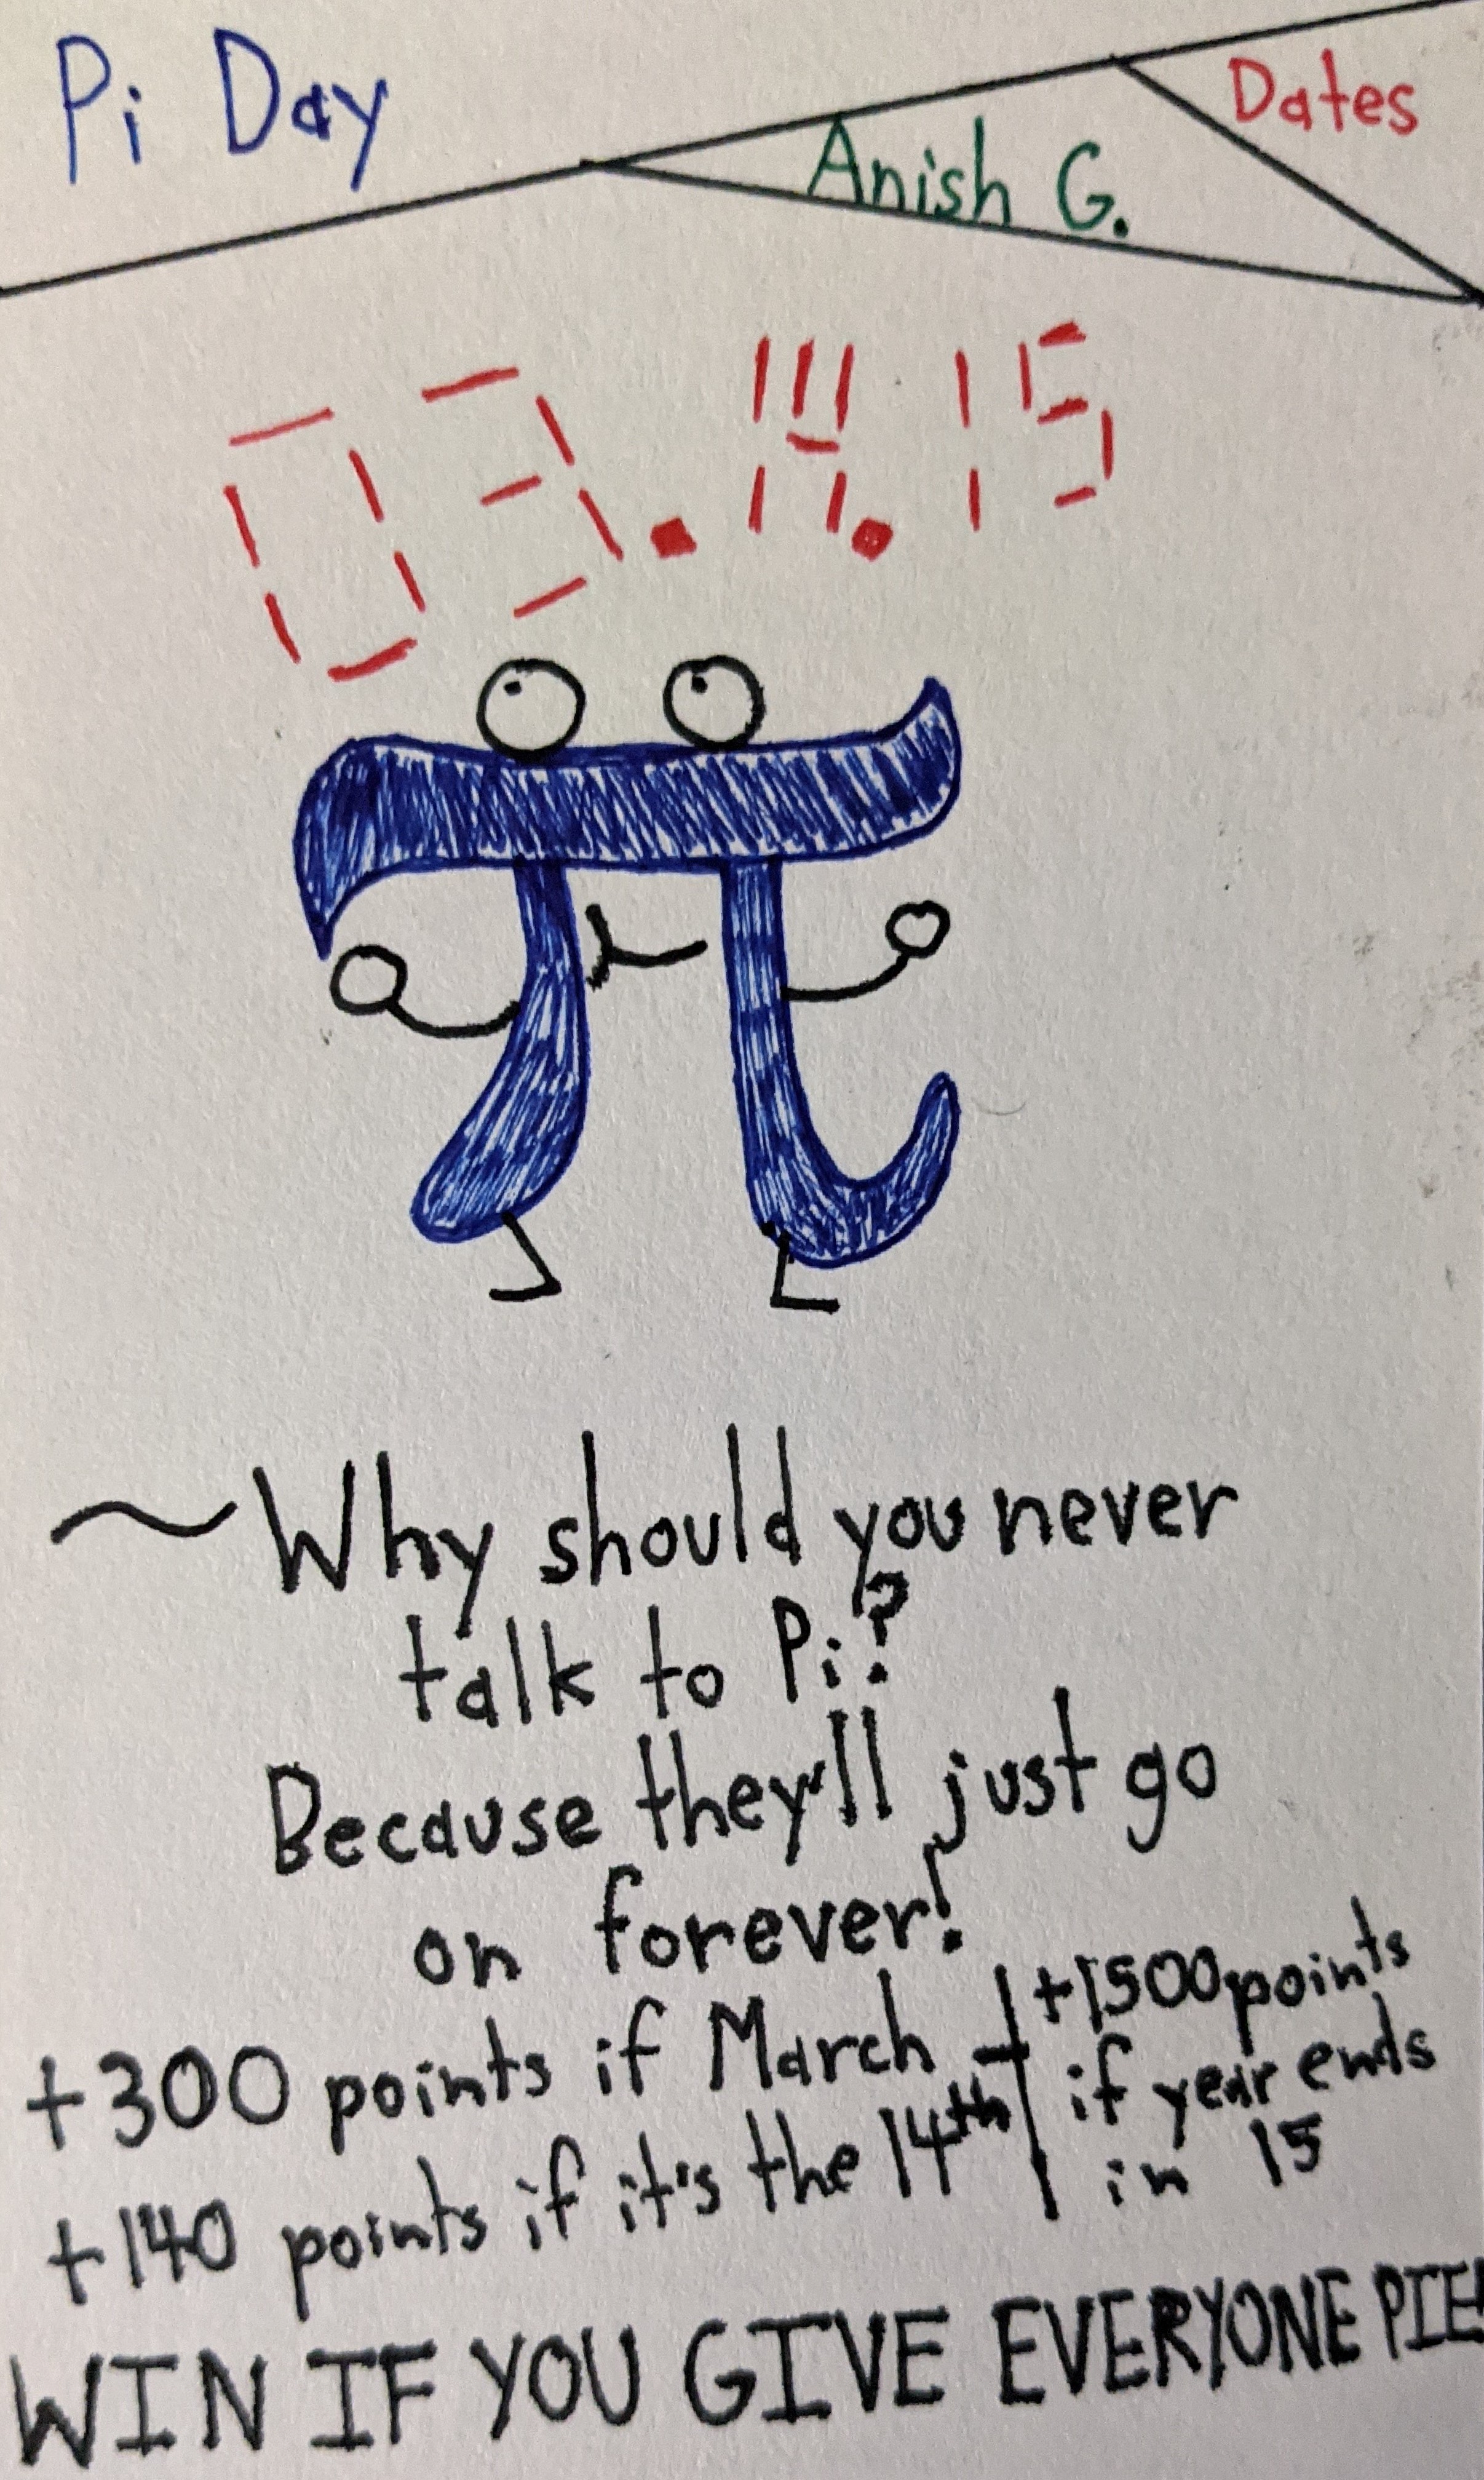 Pi Day
Anish G.
Dates
03.14.15
~Why should you never
talk to Pi?
Because they'll just go
on forever!
+300 points if March
+140 points if it's the 14th
+1500 points
if year ends
in 15
WIN IF YOU GIVE EVERYONE PIE!